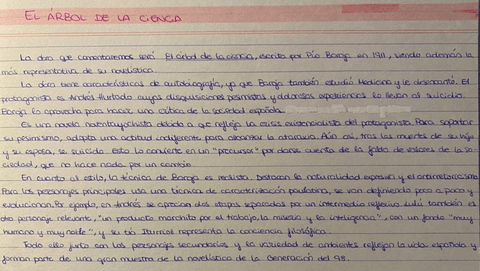 EL ÁRBOL DE LA CIENCIA
La obra que comentaremos será El árbol de la ciencia, escrita por Pío Baroja en 1911, siendo además la
más representativa de su novelística.
La obra tiene características de autobiografía, ya que Baroja también estudió Medicina y le desencantó. El
protagonista es Andrés Hurtado cuyas disquisiciones pesimistas y dolorosas experiencias lo llevan al suicidio.
Baroja lo aprovecha para hacer una crítica de la sociedad española.
Es una novela noventayochista debido a que refleja la crisis existencialista del protagonista. Para soportar
su pesimismo, adopta una actitud indiferente para alcanzar la ataraxia. Aún así, tras las muertes de su hijo
y su esposa, se suicida. Esto lo convierte en un "precursor" por darse cuenta de la falta de valores de la so-
ciedad, que no hace nada por un cambio.
En cuanto al estilo, la técnica de Baroja es realista. Destacan la naturalidad expresiva y el antirretoricismo.
Para los personajes principales usa una técnica de caracterización paulatina, se van definiendo poco a poco y
evolucionan. Por ejemplo, en Andrés se aprecian dos etapas separadas por un intermedio reflexivo. Lulú también es
otro personaje relevante, "un producto marchito por el trabajo, la miseria y la inteligencia", con un fondo "muy
humano y muy noble", y su tío Iturrioz representa la conciencia filosófica.
Todo ello junto con los personajes secundarios y la variedad de ambientes reflejan la vida española y
forman parte de una gran muestra de la novelística de la Generación del 98.